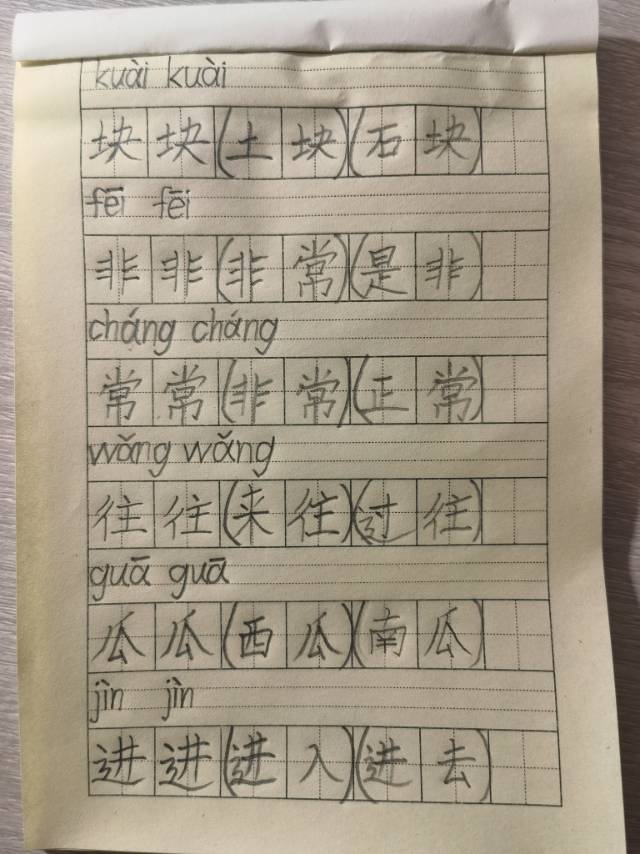 kuài kuài
块块(土块)(石块)
fēi fēi
非非(非常)(是非)
cháng cháng
常常(非常)(正常)
wǎng wǎng
往往(来往)(过往)
guā guā
瓜瓜(西瓜)(南瓜)
jìn jìn
进进(进入)(进去)